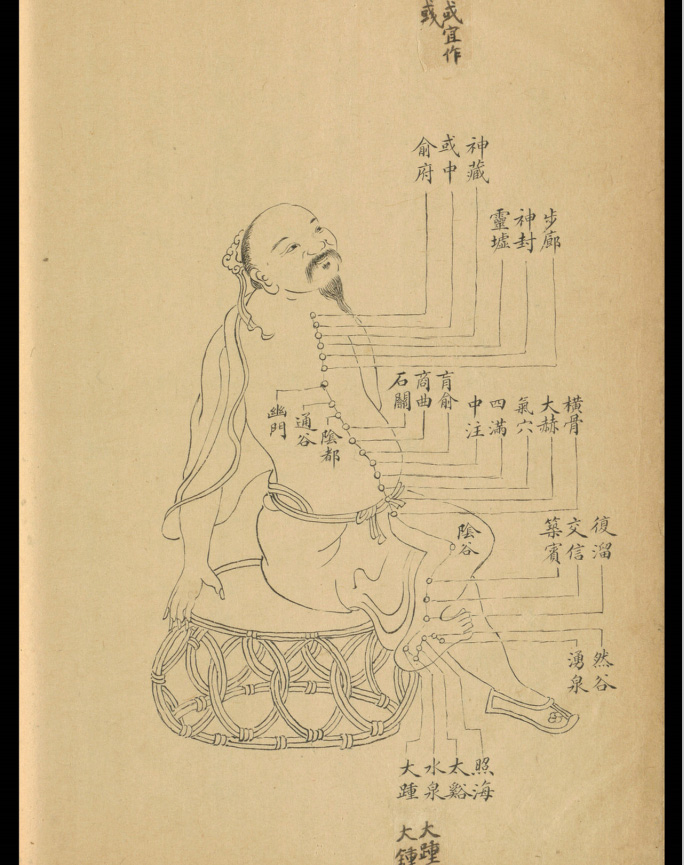 或宜作
彧
神藏
或中
俞府
步廊
神封
靈墟
幽門
通谷
陰都
石關
商曲
肓俞
中注
四滿
氣穴
大赫
橫骨
陰谷
築賓
交信
復溜
湧泉
然谷
大踵
水泉
太谿
照海
大踵
大鍾